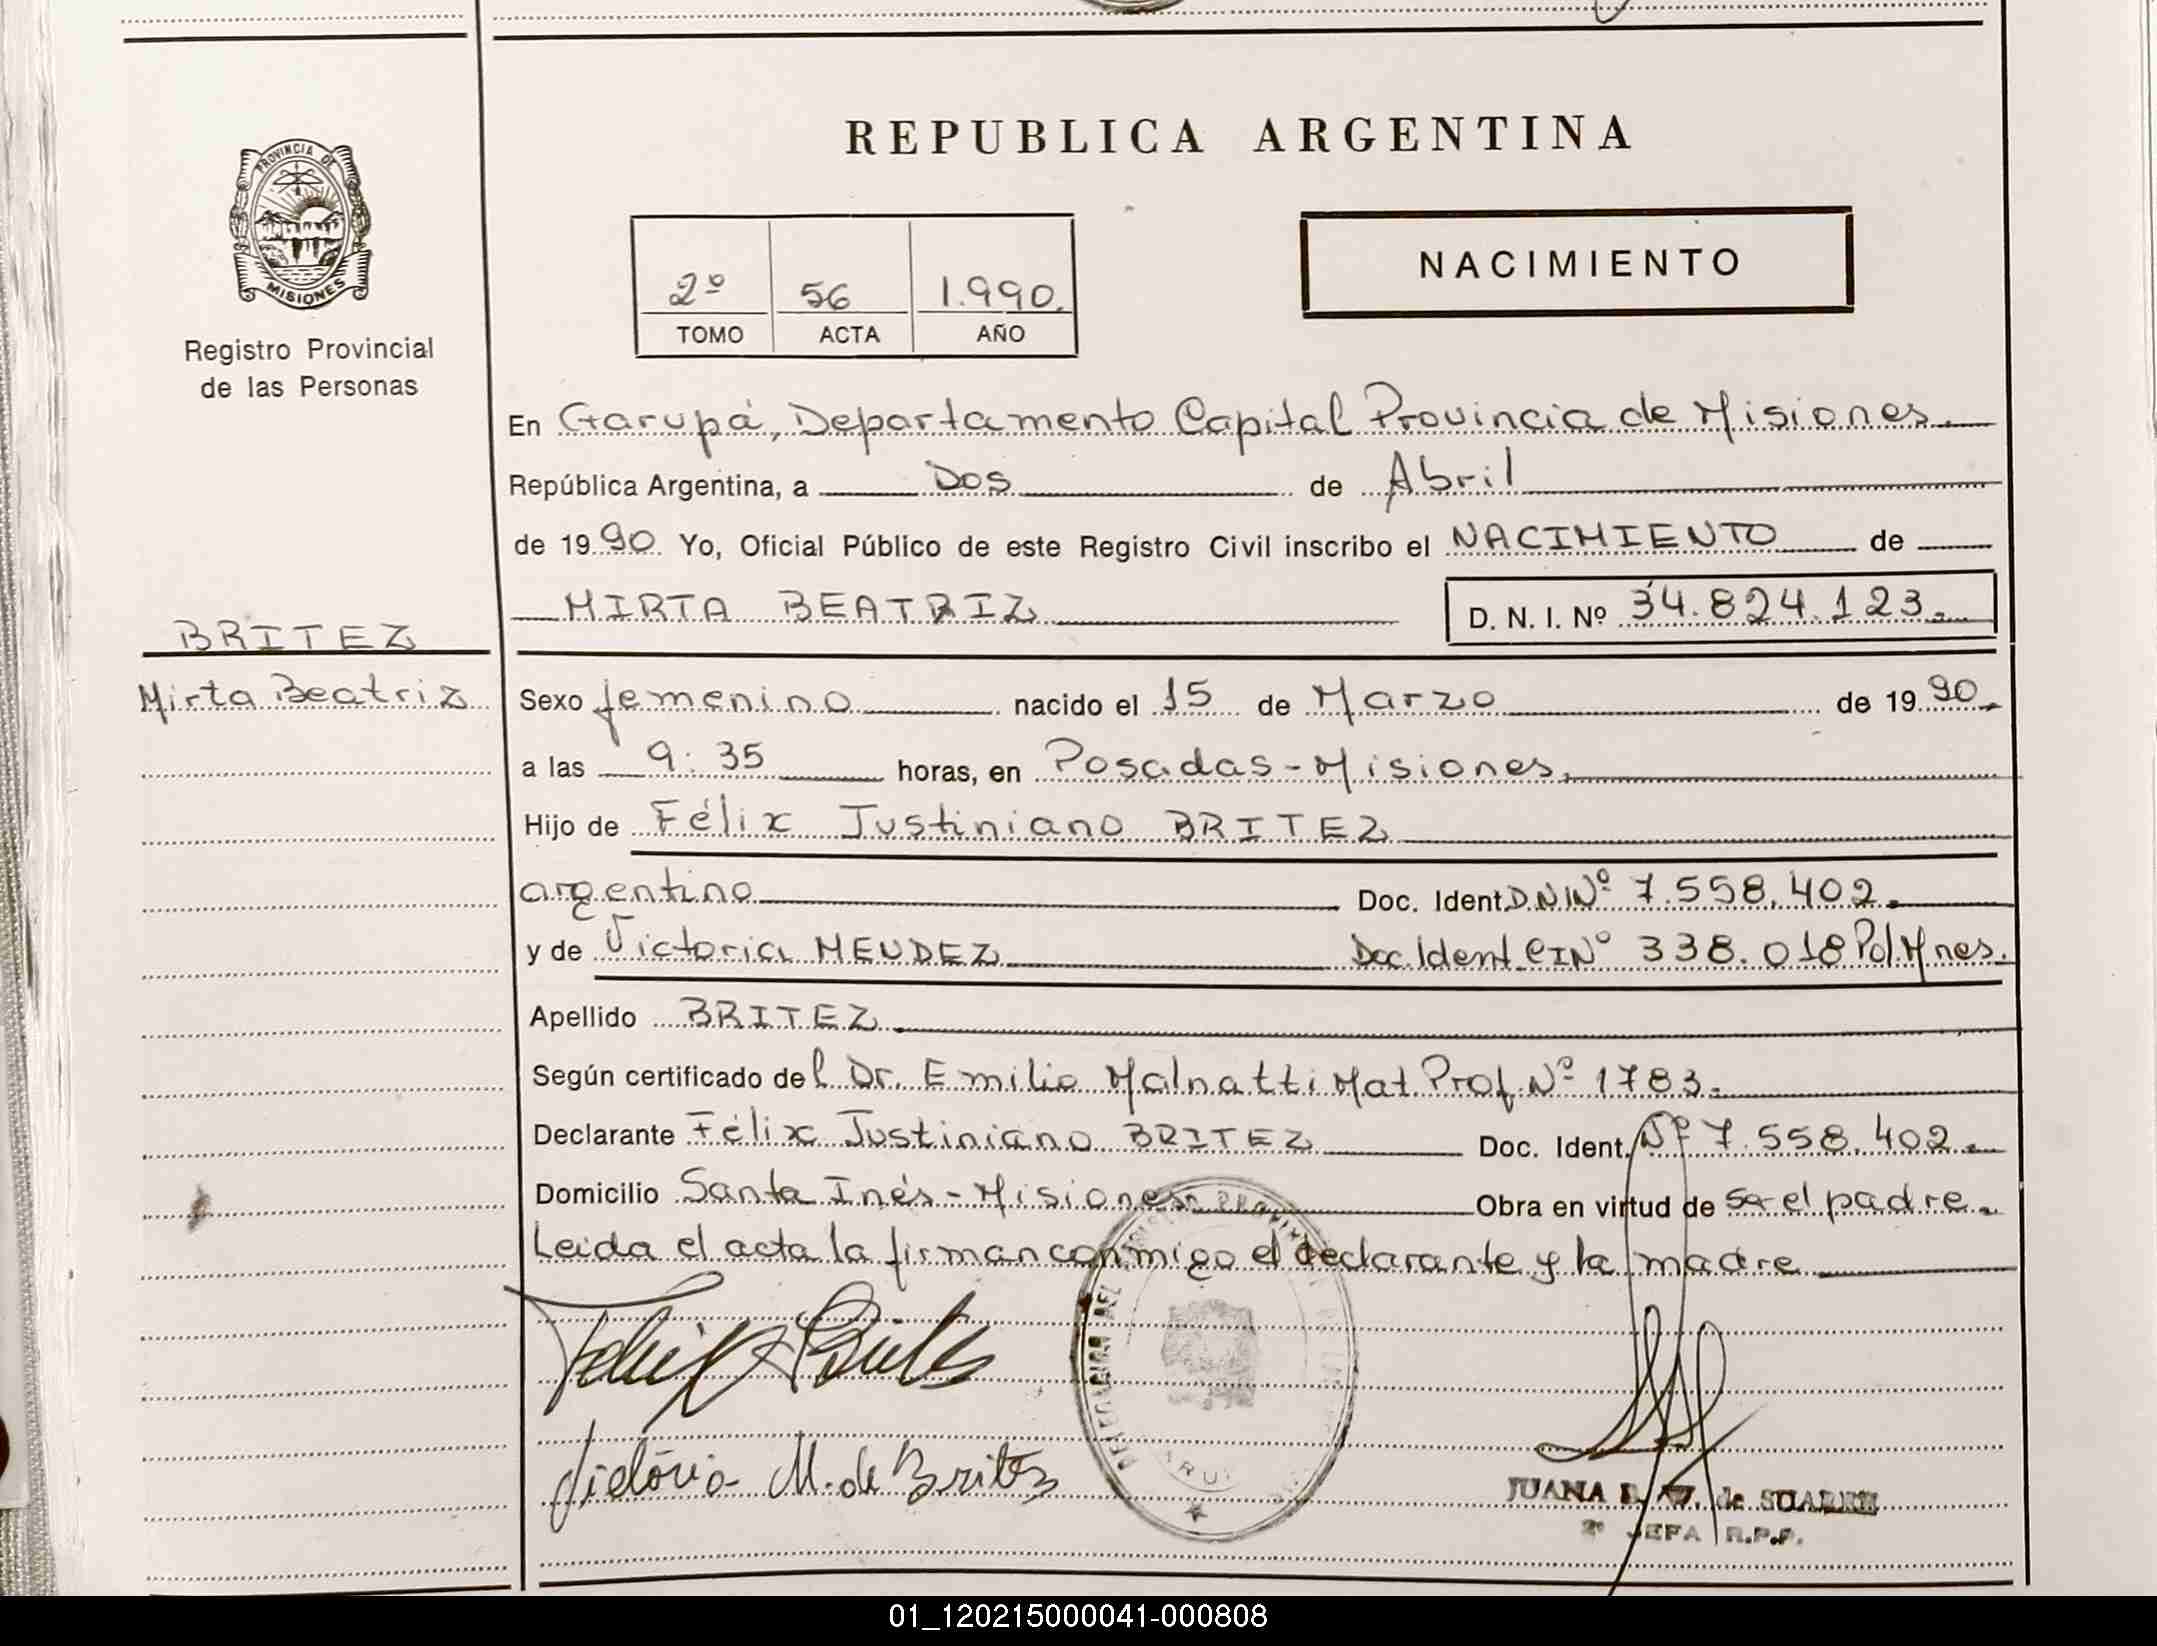 REPUBLICA ARGENTINA
PROVINCIA DE
MISIONES
Registro Provincial
de las Personas
2º 56 1.990.
TOMO ACTA AÑO
NACIMIENTO
En Garupá, Departamento Capital Provincia de Misiones.
República Argentina, a Dos de Abril
de 1990. Yo, Oficial Público de este Registro Civil inscribo el NACIMIENTO de
MIRTA BEATRIZ D. N. I. Nº 34.824.123.
BRITEZ
Mirta Beatriz
Sexo femenino nacido el 15 de Marzo de 1990.
a las 9:35 horas, en Posadas-Misiones.
Hijo de Félix Justiniano BRITEZ
argentino Doc. Ident. DNINº 7.558.402.
y de Victoria MENDEZ Doc. Ident CINº 338.018 Pol Mnes.
Apellido BRITEZ
Según certificado del Dr. Emilio Malnatti Mat. Prof. Nº 1783.
Declarante Félix Justiniano BRITEZ Doc. Ident. Nº 7.558.402.
Domicilio Santa Inés-Misiones Obra en virtud de se el padre.
Leida el acta la firman conmigo el declarante y la madre
Felix Britez
Victoria M. de Britez
JUANA de SUAREZ
2º JEFA R.P.P.
01_120215000041-000808